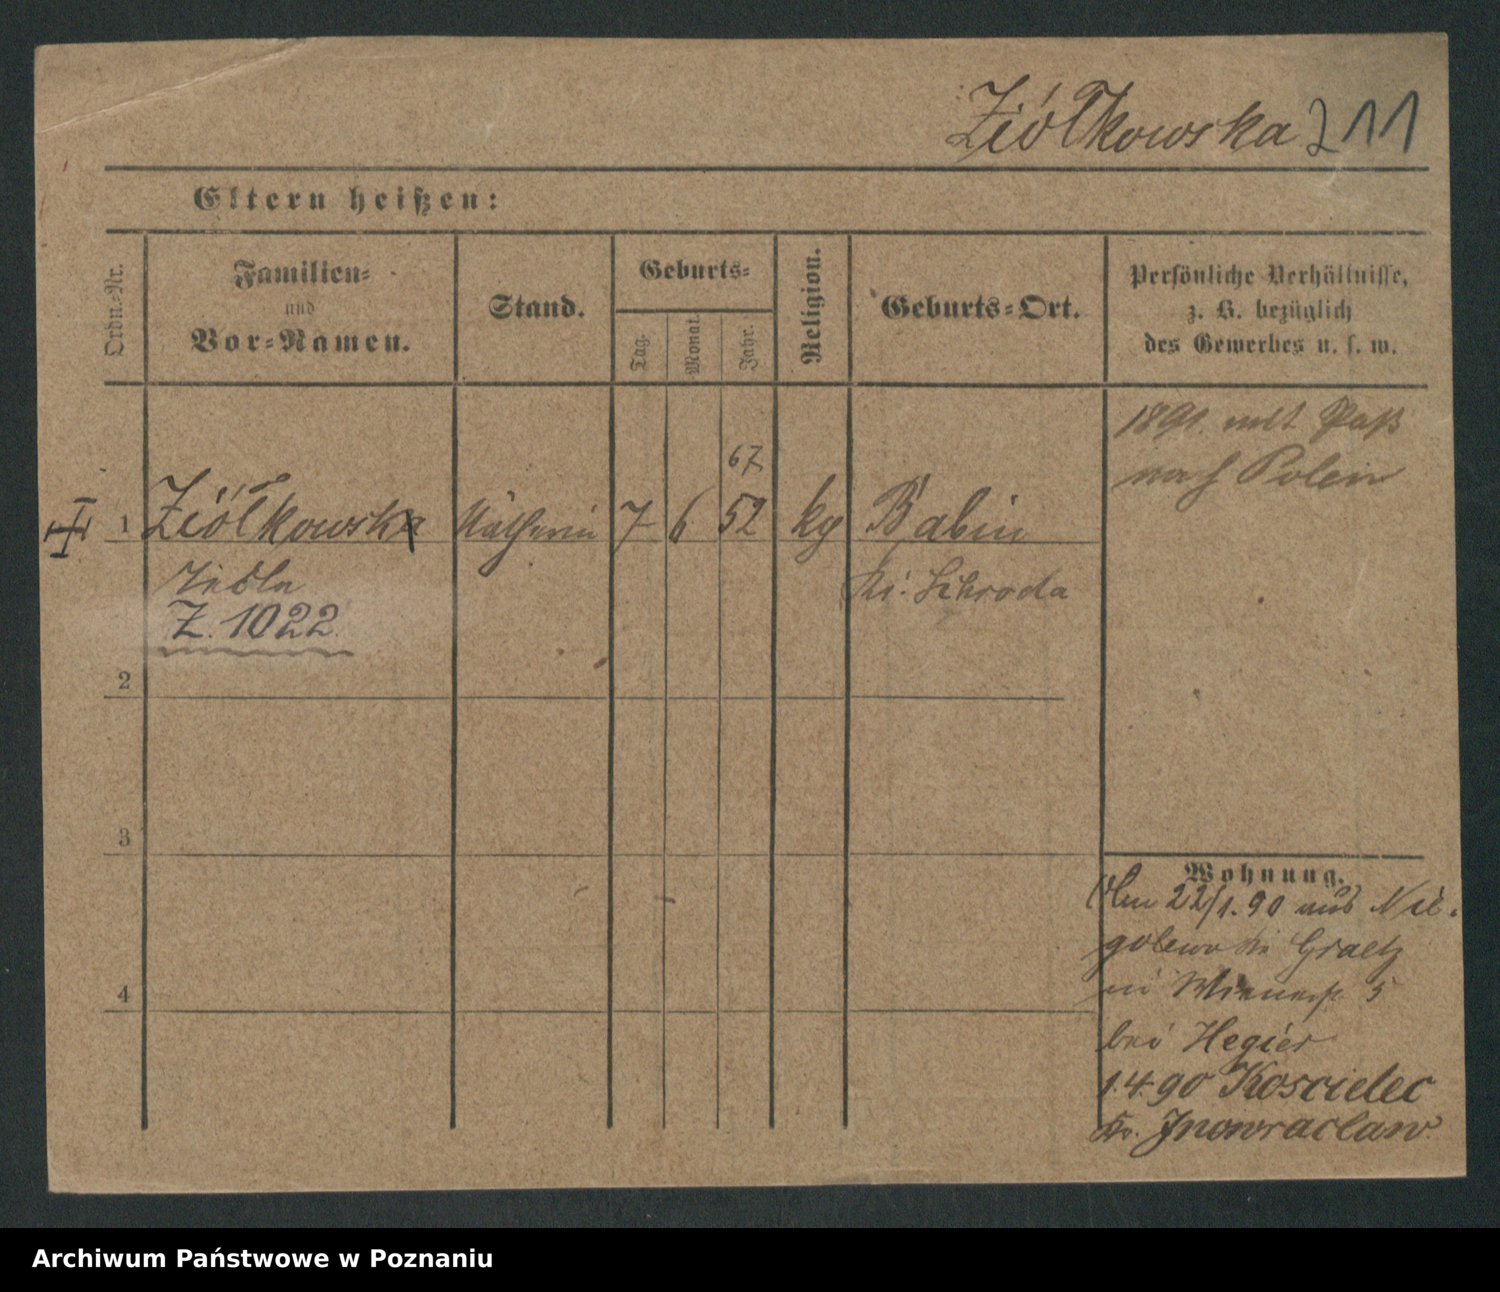 Ziółkowska 211
Eltern heißen:
Ordn.=Nr.
Familien=
und
Vor=Namen.
Stand.
Geburts=
Tag.
Monat.
Jahr.
Religion.
Geburts=Ort.
Persönliche Verhältnisse,
z. B. bezüglich
des Gewerbes u. s. w.
1891. mit Paß
nach Polen
67
1 Ziółkowska 7 6 52 Babin
Kr. Schroda
Z. 1022.
2
3
4
Wohnung.
Am 22/1.90 aus Nie-
golewo Kr Graetz
in 5
bei Hegier
1.4.90 Koscielec
Kr. Jnowraclaw
Archiwum Państwowe w Poznaniu